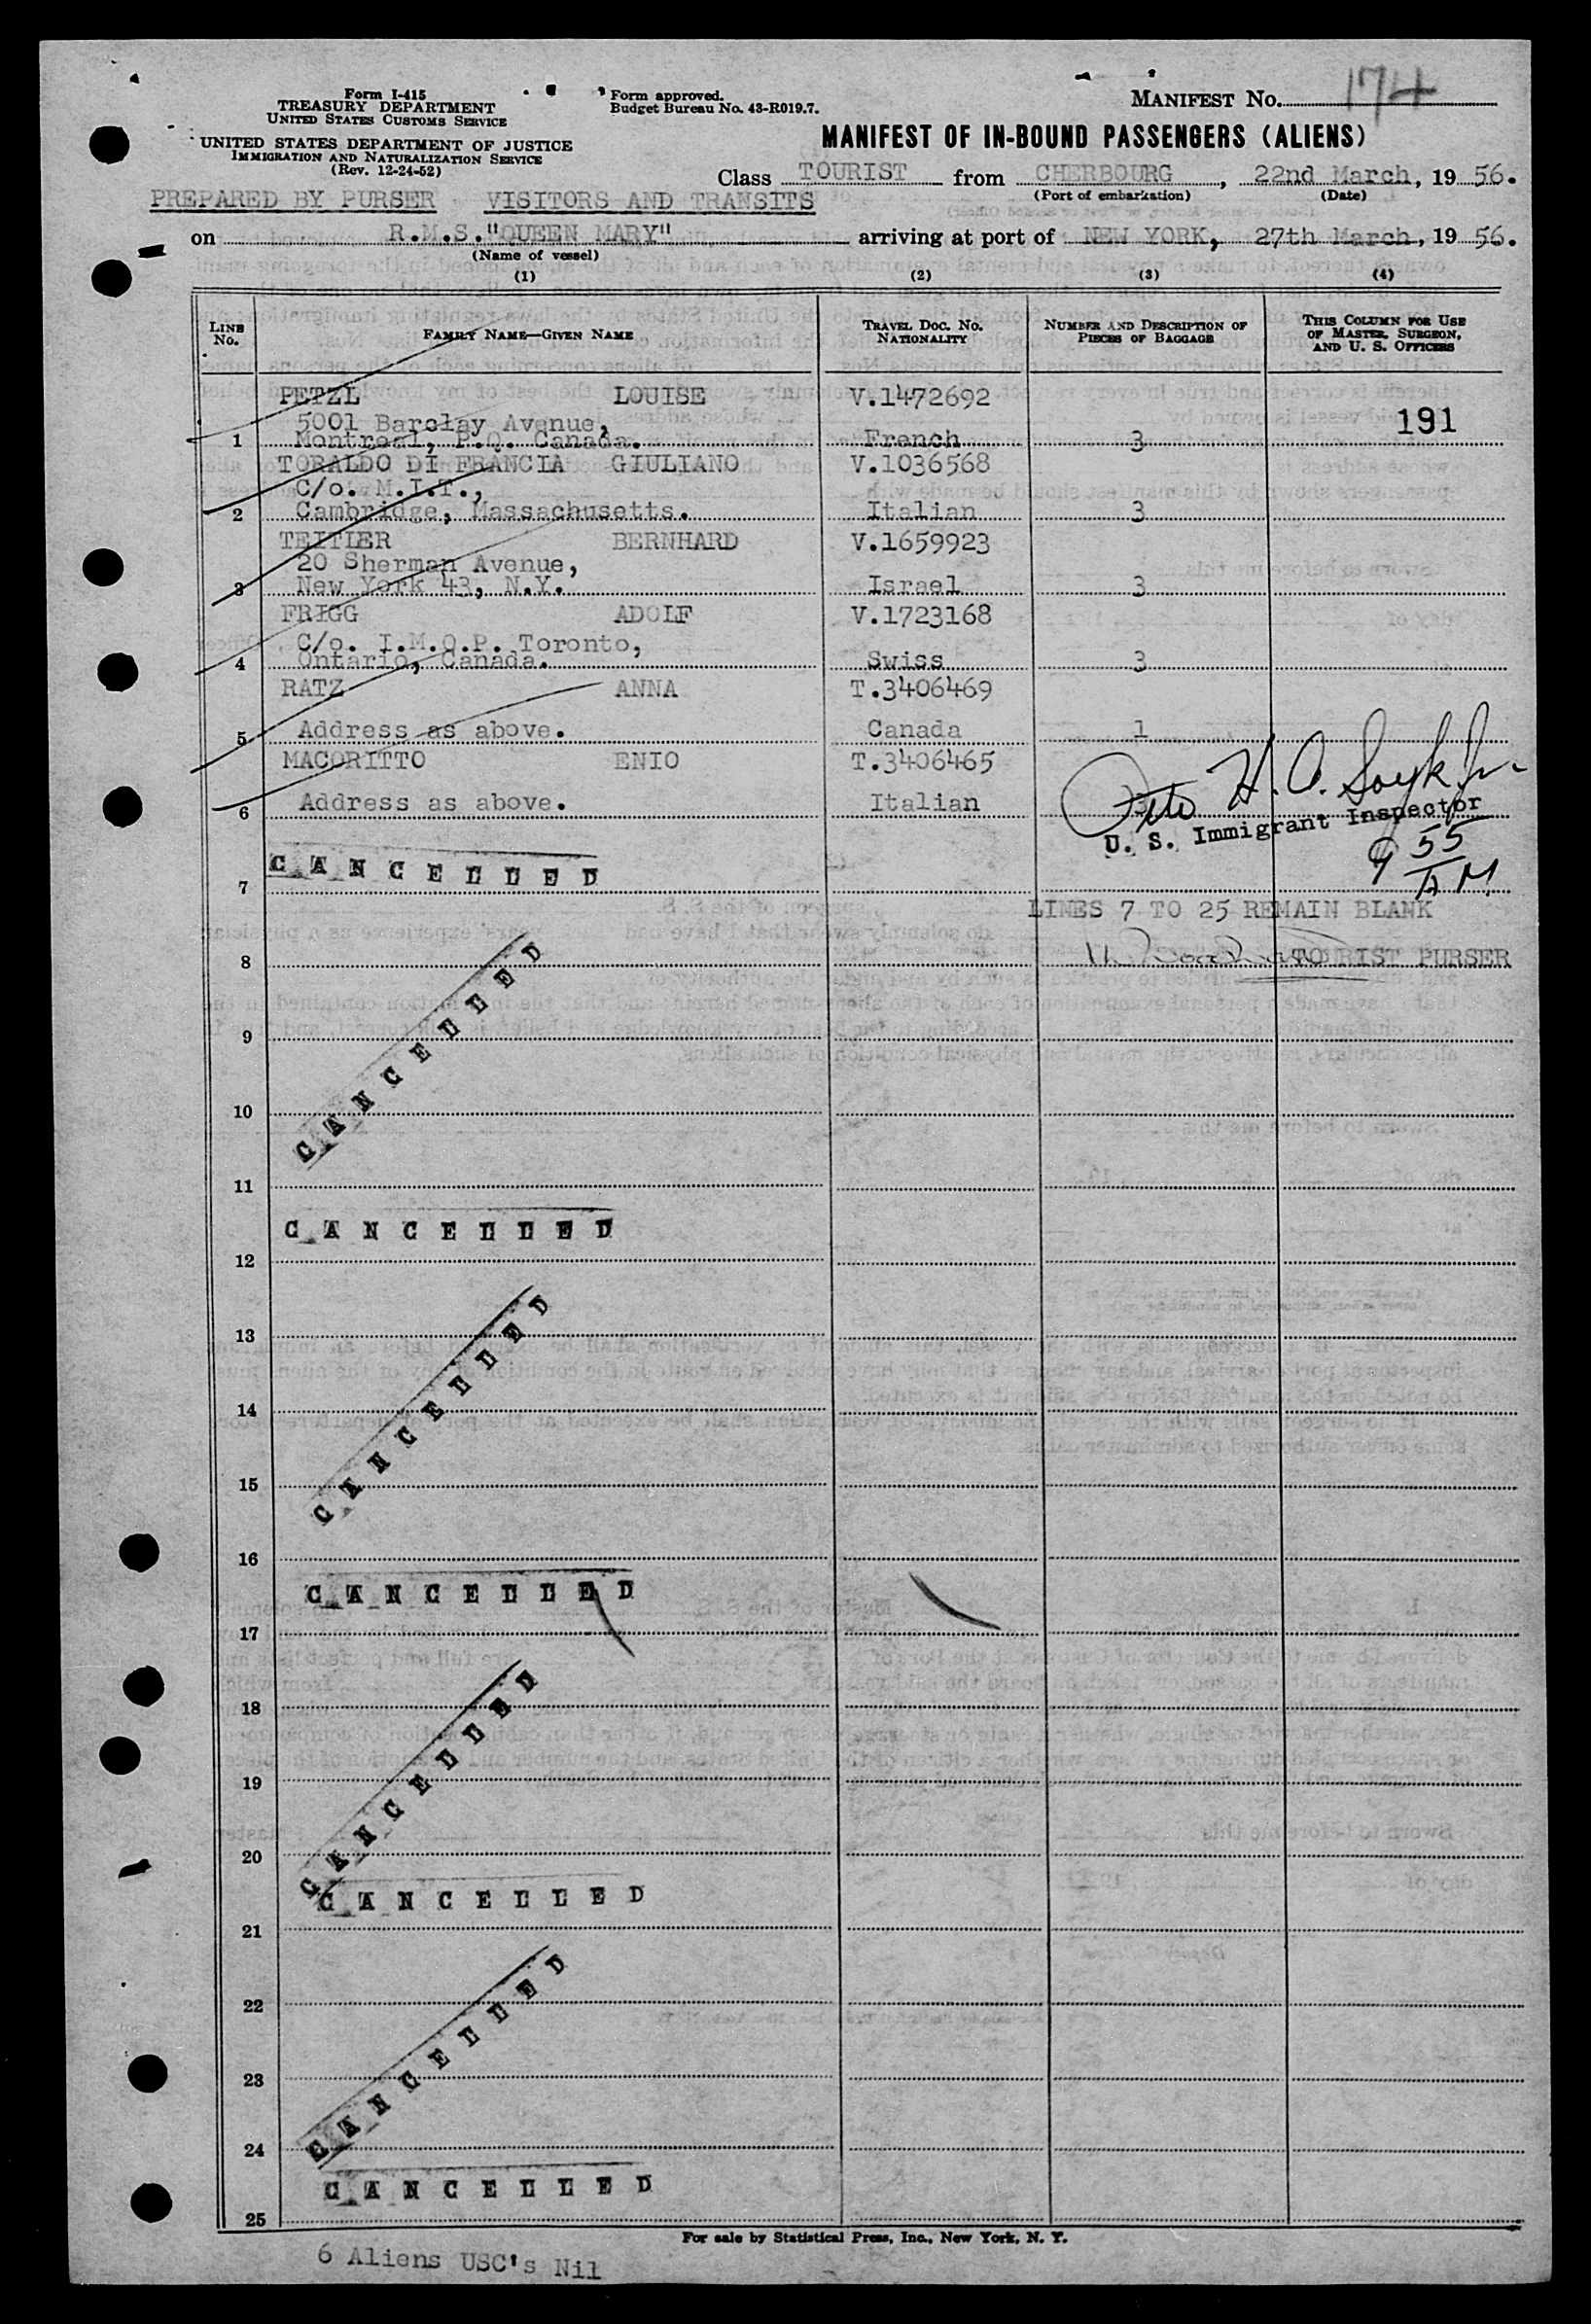 Form I-415
TREASURY DEPARTMENT
UNITED STATES CUSTOMS SERVICE
UNITED STATES DEPARTMENT OF JUSTICE
IMMIGRATION AND NATURALIZATION SERVICE
(Rev. 12-24-52)
Form approved.
Budget Bureau No. 43-R019.7.
MANIFEST NO. 174
MANIFEST OF IN-BOUND PASSENGERS (ALIENS)
Class TOURIST from CHERBOURG, 22nd March, 19 56.
(Port of embarkation) (Date)
PREPARED BY PURSER VISITORS AND TRANSITS
on R.M.S."QUEEN MARY" arriving at port of NEW YORK, 27th March, 19 56.
(Name of vessel)
(1) (2) (3) (4)
LINE NO. FAMILY NAME—GIVEN NAME TRAVEL DOC. NO. NATIONALITY NUMBER AND DESCRIPTION OF PIECES OF BAGGAGE THIS COLUMN FOR USE OF MASTER, SURGEON, AND U. S. OFFICERS
PETZL LOUISE V.1472692
5001 Barclay Avenue, 191
1 Montreal, P.Q. Canada. French 3
TORALDO DI FRANCIA GIULIANO V.1036568
C/o. M.I.T.,
2 Cambridge, Massachusetts. Italian 3
TEITLER BERNHARD V.1659923
20 Sherman Avenue,
3 New York 43, N.Y. Israel 3
FRIGG ADOLF V.1723168
C/o. I.M.O.P. Toronto,
4 Ontario, Canada. Swiss 3
RATZ ANNA T.3406469
5 Address as above. Canada 1
MACORITTO ENIO T.3406465
6 Address as above. Italian
H. A.
U. S. Immigrant Inspector
9 55 AM
CANCELLED
7
LINES 7 TO 25 REMAIN BLANK
8 TOURIST PURSER
CANCELLED
9
10
11
CANCELLED
12
13
CANCELLED
14
15
16
CANCELLED
17
18
CANCELLED
19
20
CANCELLED
21
22
CANCELLED
23
24
CANCELLED
25
For sale by Statistical Press, Inc., New York, N. Y.
6 Aliens USC's Nil